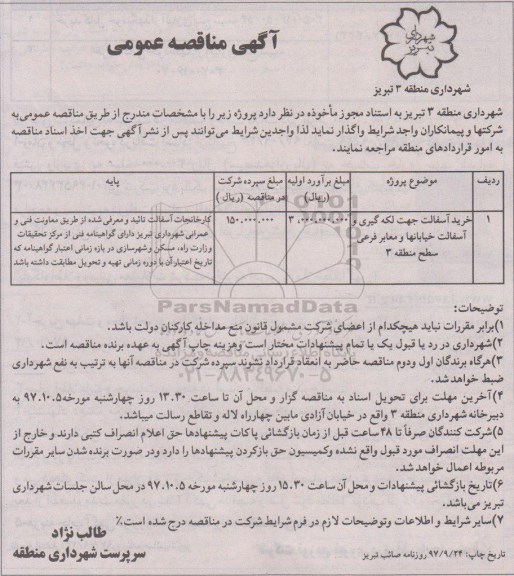 شهرداری تبریز
آگهی مناقصه عمومی
شهرداری منطقه ۳ تبریز
شهرداری منطقه ۳ تبریز به استناد مجوز مأخوذه در نظر دارد پروژه زیر را با مشخصات مندرج از طریق مناقصه عمومی به
شرکتها و پیمانکاران واجد شرایط واگذار نماید لذا واجدین شرایط می‌توانند پس از نشر آگهی جهت اخذ اسناد مناقصه
به امور قراردادهای منطقه مراجعه نمایند.
ردیف موضوع پروژه مبلغ برآورد اولیه (ریال) مبلغ سپرده شرکت در مناقصه (ریال) پایه
۱ خرید آسفالت جهت لکه گیری و آسفالت خیابانها و معابر فرعی سطح منطقه ۳ ۳.۰۰۰.۰۰۰.۰۰۰ ۱۵۰.۰۰۰.۰۰۰ کارخانجات آسفالت تائید و معرفی شده از طریق معاونت فنی و
عمرانی شهرداری تبریز دارای گواهینامه فنی از مرکز تحقیقات
وزارت راه، مسکن و شهرسازی در بازه زمانی اعتبار گواهینامه که
تاریخ اعتبار آن با دوره زمانی تهیه و تحویل مطابقت داشته باشد
ParsNamadData
۰۲۱-۸۸۳۴۹۶۷۰-۵
توضیحات:
۱)برابر مقررات نباید هیچکدام از اعضای شرکت مشمول قانون منع مداخله کارکنان دولت باشد.
۲)شهرداری در رد یا قبول یک یا تمام پیشنهادات مختار است وهزینه چاپ آگهی به عهده برنده مناقصه است.
۳)هرگاه برندگان اول ودوم مناقصه حاضر به انعقاد قرارداد نشوند سپرده شرکت در مناقصه آنها به ترتیب به نفع شهرداری
ضبط خواهد شد.
۴)آخرین مهلت برای تحویل اسناد به مناقصه گزار و محل آن تا ساعت ۱۳.۳۰ روز چهارشنبه مورخه ۹۷.۱۰.۵ به
دبیرخانه شهرداری منطقه ۳ واقع در خیابان آزادی مابین چهارراه لاله و تقاطع رسالت میباشد.
۵)شرکت کنندگان صرفاً تا ۴۸ ساعت قبل از زمان بازگشائی پاکات پیشنهادها حق اعلام انصراف کتبی دارند و خارج از
این مهلت انصراف مورد قبول واقع نشده وکمیسیون حق بازکردن پیشنهادها را دارد ودر صورت برنده شدن سایر مقررات
مربوطه اعمال خواهد شد.
۶)تاریخ بازگشائی پیشنهادات و محل آن ساعت ۱۵.۳۰ روز چهارشنبه مورخه ۹۷.۱۰.۵ در محل سالن جلسات شهرداری
تبریز می‌باشد.
۷)سایر شرایط و اطلاعات وتوضیحات لازم در فرم شرایط شرکت در مناقصه درج شده است.٪
طالب نژاد
سرپرست شهرداری منطقه
تاریخ چاپ: ۹۷/۹/۲۴ روزنامه صائب تبریز